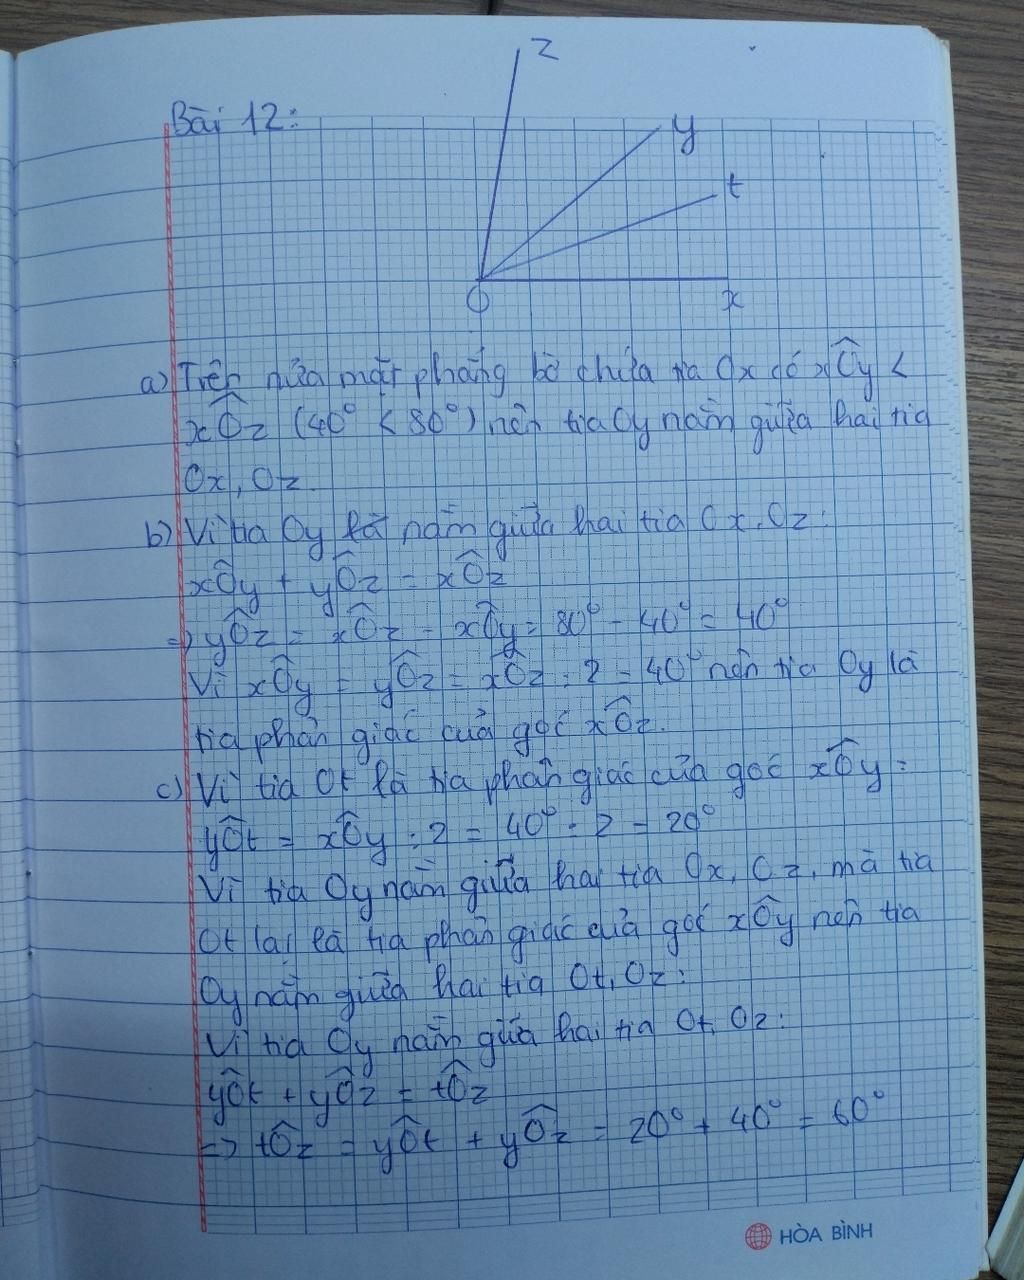 z
Bài 12:
y
t
O
x
a) Trên nửa mặt phẳng bờ chứa tia Ox có xÔy <
xÔz (40° < 80°) nên tia Oy nằm giữa hai tia
Ox, Oz
b) Vì tia Oy nằm giữa hai tia Ox, Oz:
xÔy + yÔz = xÔz
=> yÔz = xÔz - xÔy = 80° - 40° = 40°
Vì xÔy = yÔz = xÔz : 2 = 40° nên tia Oy là
tia phân giác của góc xÔz.
c) Vì tia Ot là tia phân giác của góc xÔy:
yÔt = xÔy : 2 = 40° : 2 = 20°
Vì tia Oy nằm giữa hai tia Ox, Oz, mà tia
Ot lại là tia phân giác của góc xÔy nên tia
Oy nằm giữa hai tia Ot, Oz:
Vì tia Oy nằm giữa hai tia Ot, Oz:
yÔt + yÔz = tÔz
=> tÔz = yÔt + yÔz = 20° + 40° = 60°
HÒA BÌNH